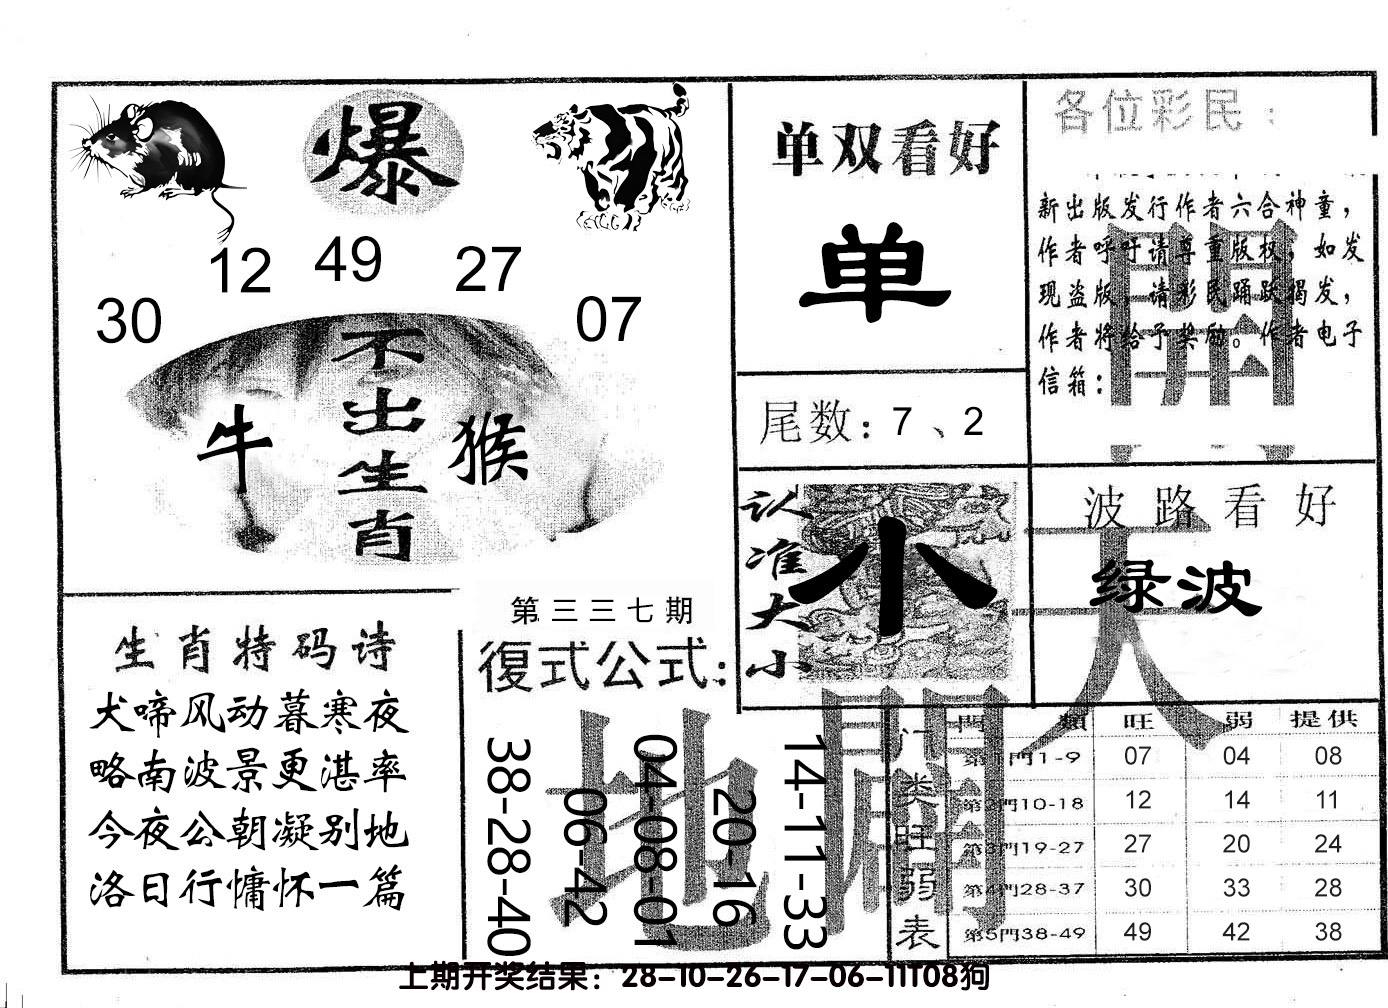 爆
12 49 27
30 07
不出生肖
牛 猴
单双看好
单
尾数：7、2
各位彩民：
新出版发行作者六合神童，
作者呼吁请尊重版权，如发
现盗版，请彩民踊跃揭发，
作者将给予奖励。作者电子
信箱：
認准大小
小
波路看好
绿波
天
開
地
闢
生肖特码诗
犬啼风动暮寒夜
略南波景更湛率
今夜公朝凝别地
洛日行慵怀一篇
第三三七期
復式公式：
38-28-40
06-42
04-08-01
20-16
14-11-33
门类旺弱表
門類 旺 弱 提供
第1門1-9 07 04 08
第2門10-18 12 14 11
第3門19-27 27 20 24
第4門28-37 30 33 28
第5門38-49 49 42 38
上期开奖结果：28-10-26-17-06-11T08狗